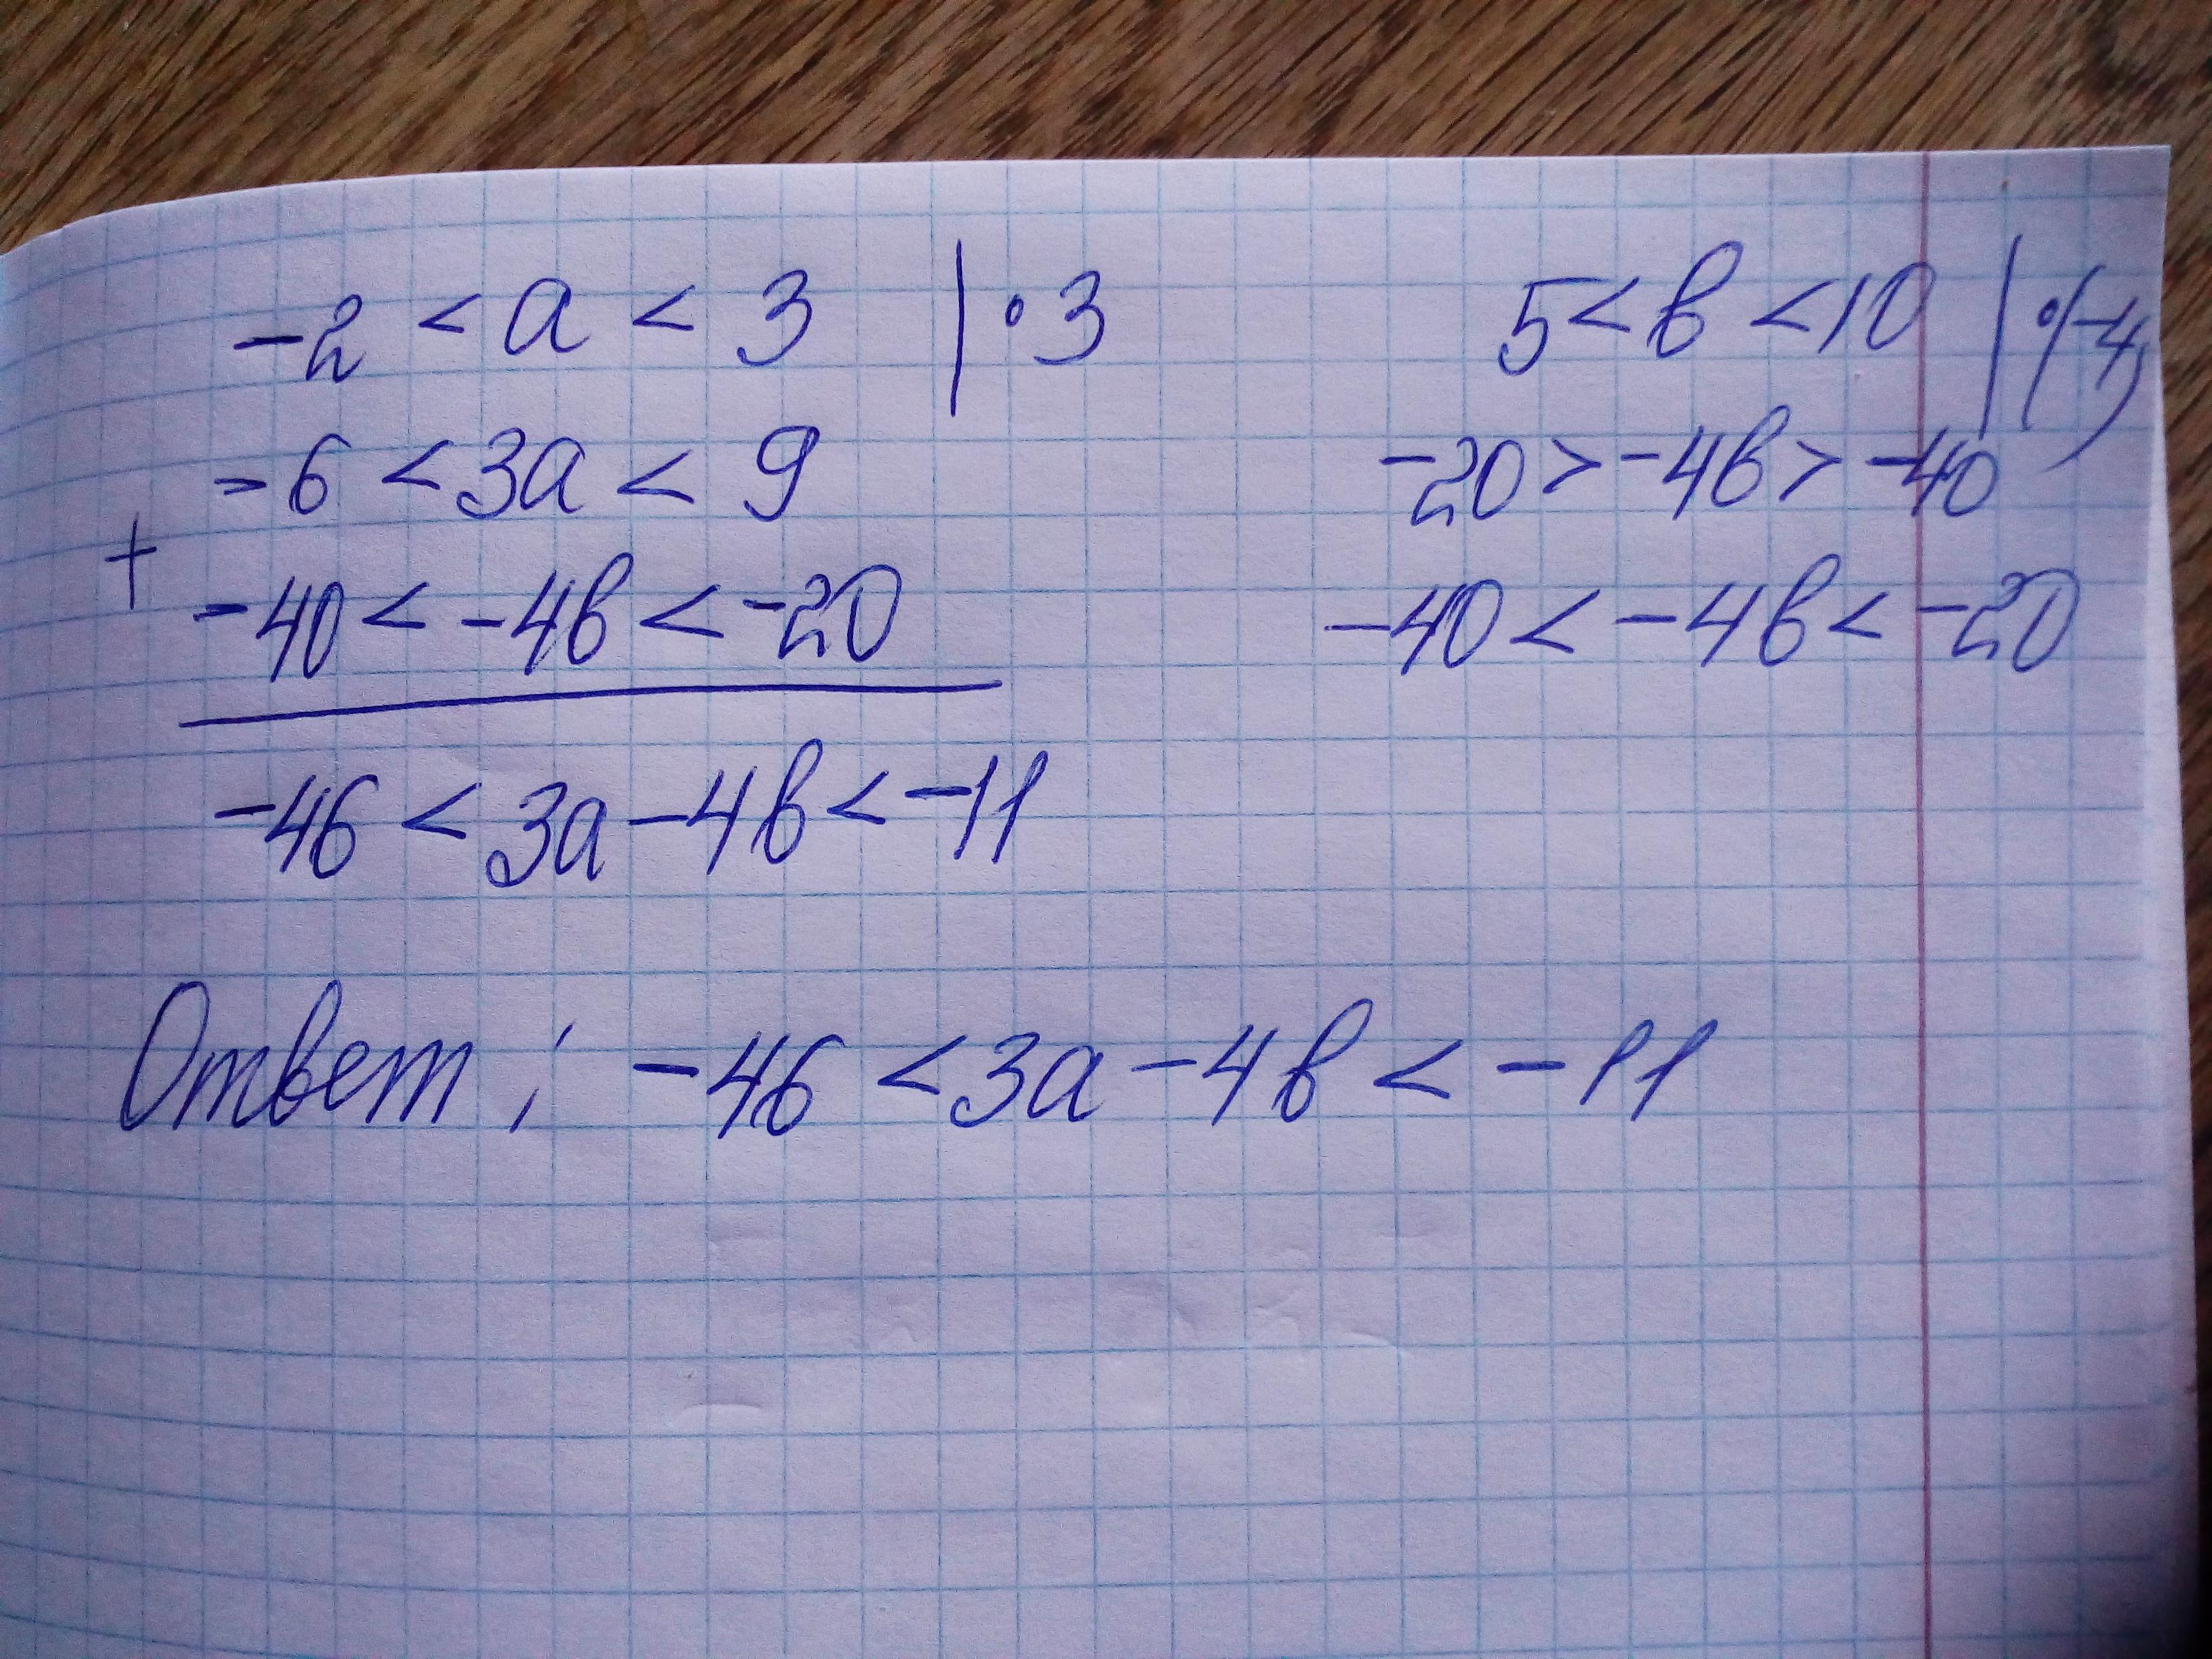 -2 < a < 3 | · 3
5 < в < 10 | · (-4)
-6 < 3a < 9
-20 > -4в > -40
+
-40 < -4в < -20
-40 < -4в < -20
-46 < 3a - 4в < -11
Ответ: -46 < 3a - 4в < -11